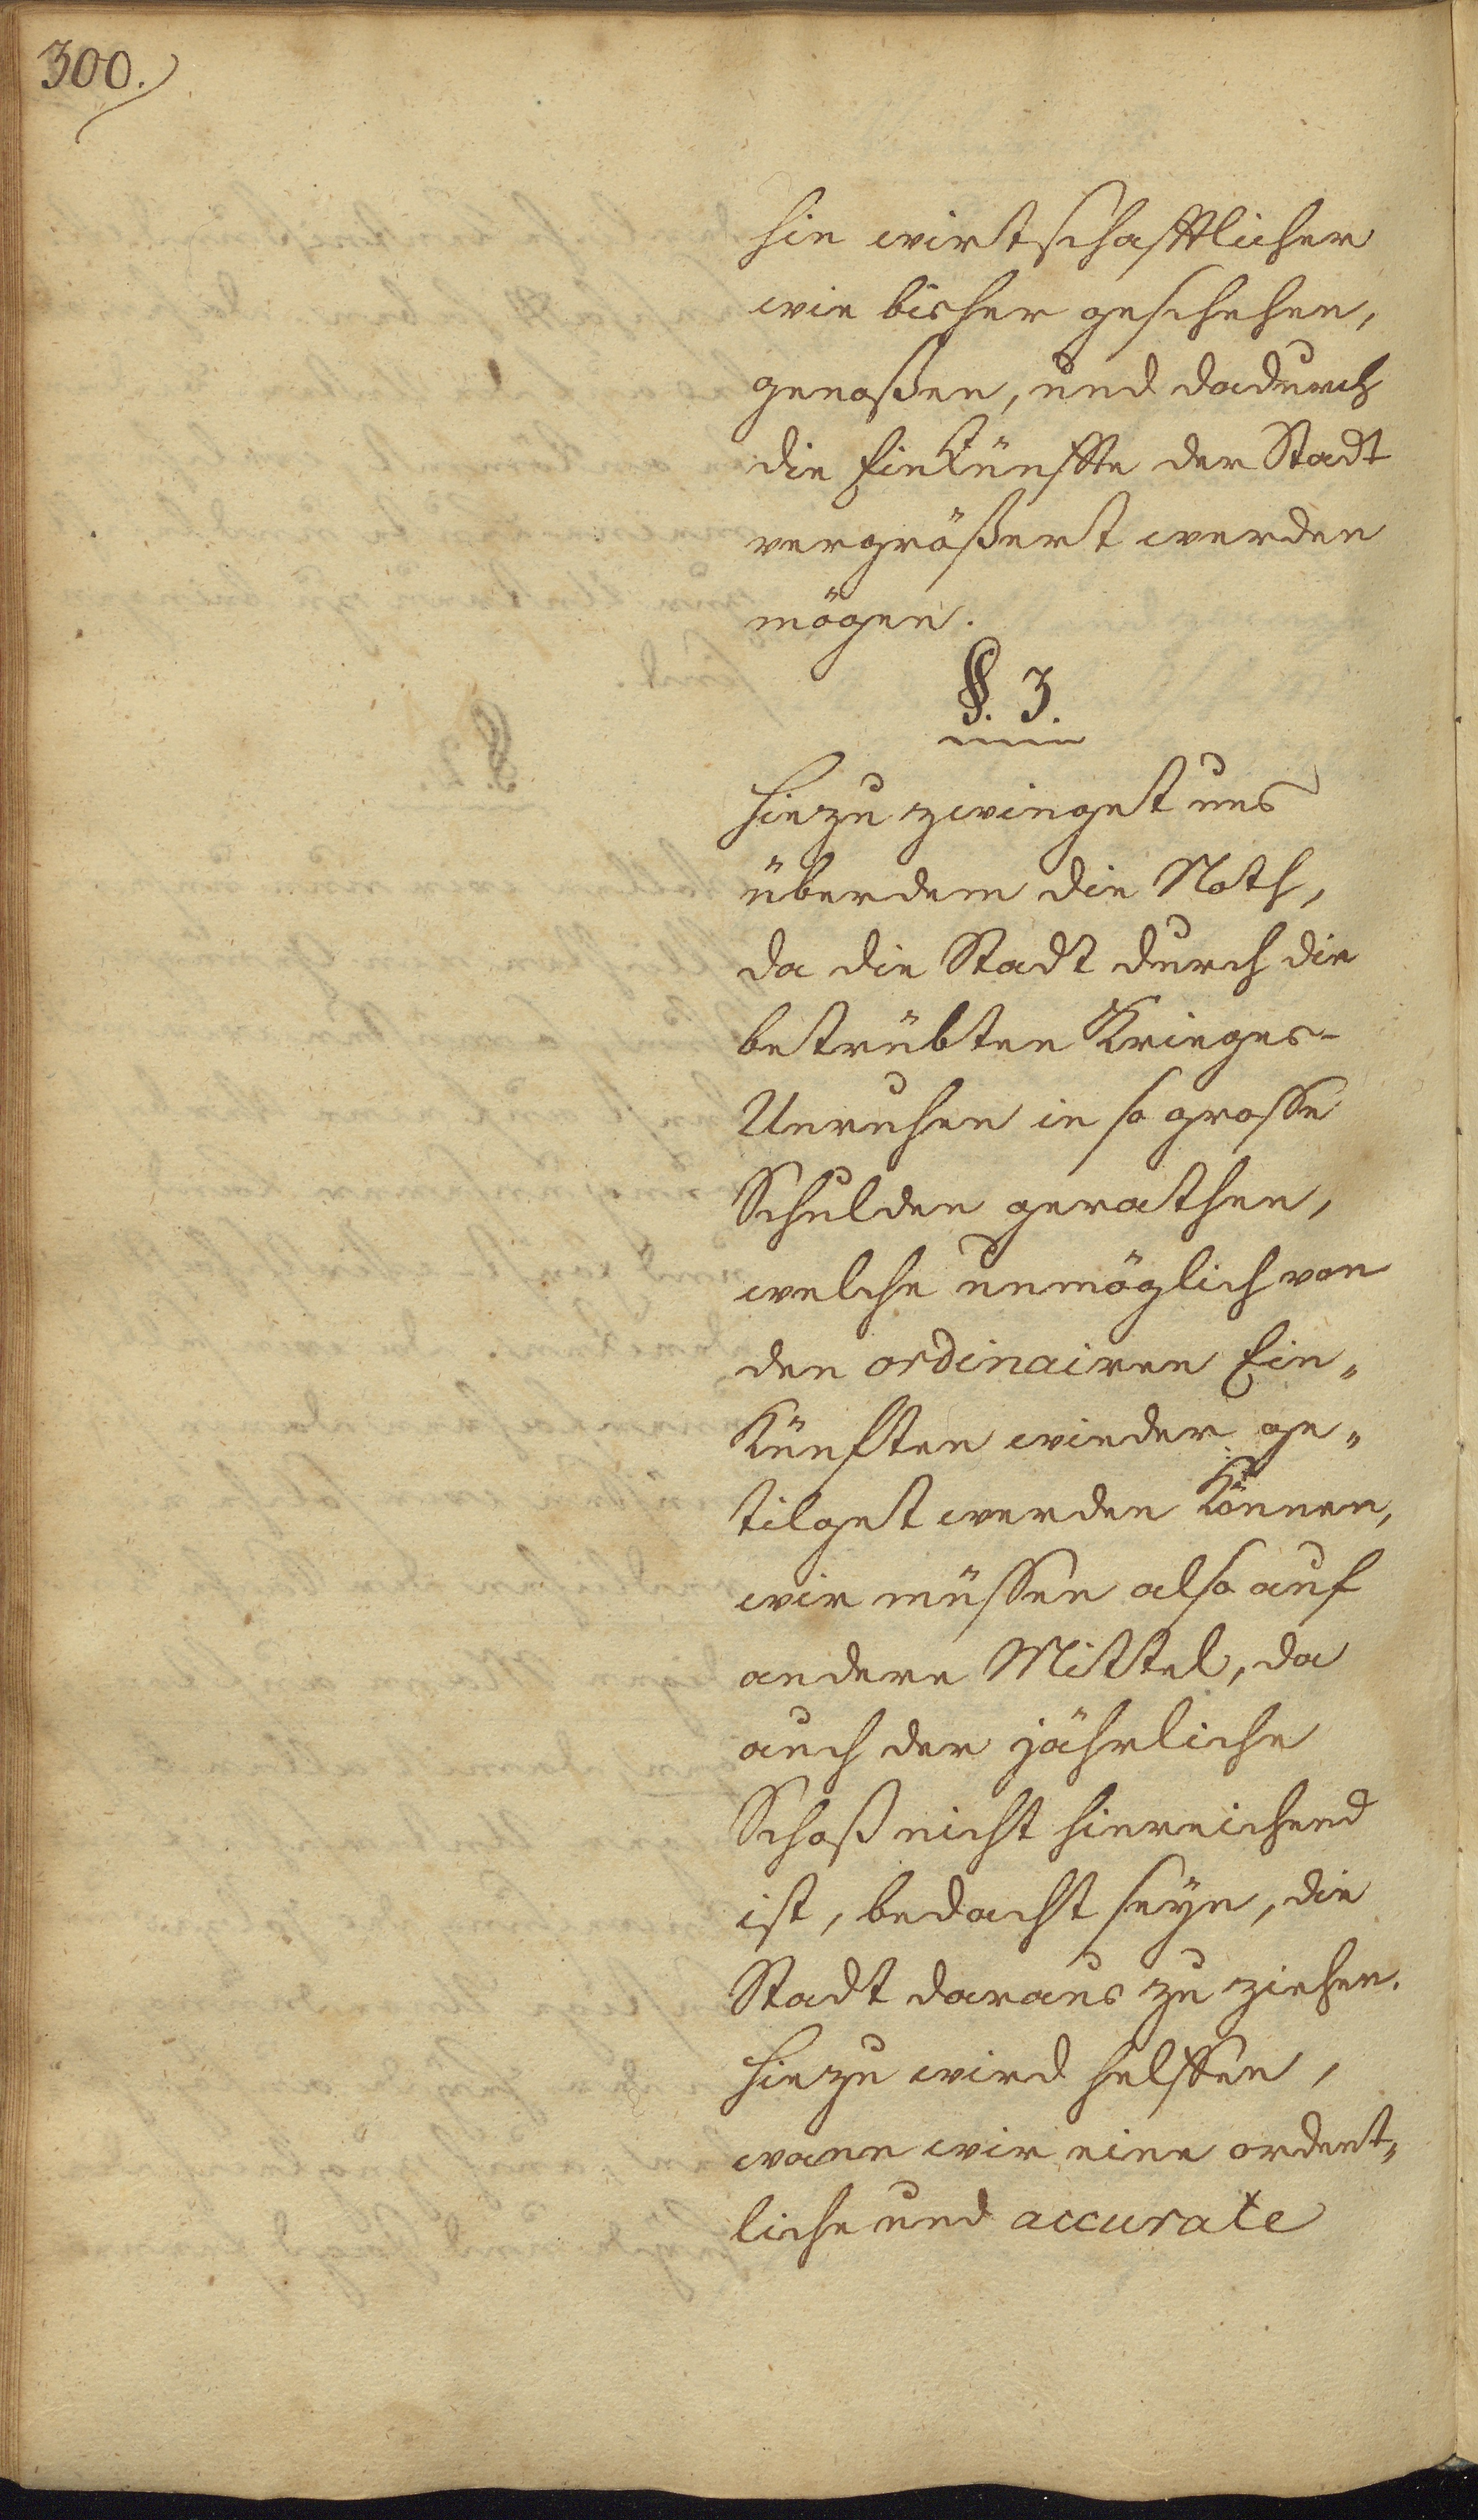 300.
hin wirtschafftlicher
wie bisher geschehen,
genoßen, und dadurch
die Einkünffte der Stadt
vergrößert werden
mögen.
§. 3.
Hiezu zwinget uns
überdem die Noth,
da die Stadt durch die
betrübten Krieges-
Unruhen in so grosse
Schulden gerathen,
welche unmöglich von
den ordinairen Ein„
Künften wieder ge„
tilget werden Können,
wir müssen also auf
andere Mittel, da
auch der jährliche
Schoß nicht hinreichend
ist, bedacht seÿn, die
Stadt daraus zu ziehen.
Hiezu wird helffen,
wann wir eine ordent„
liche und accurate